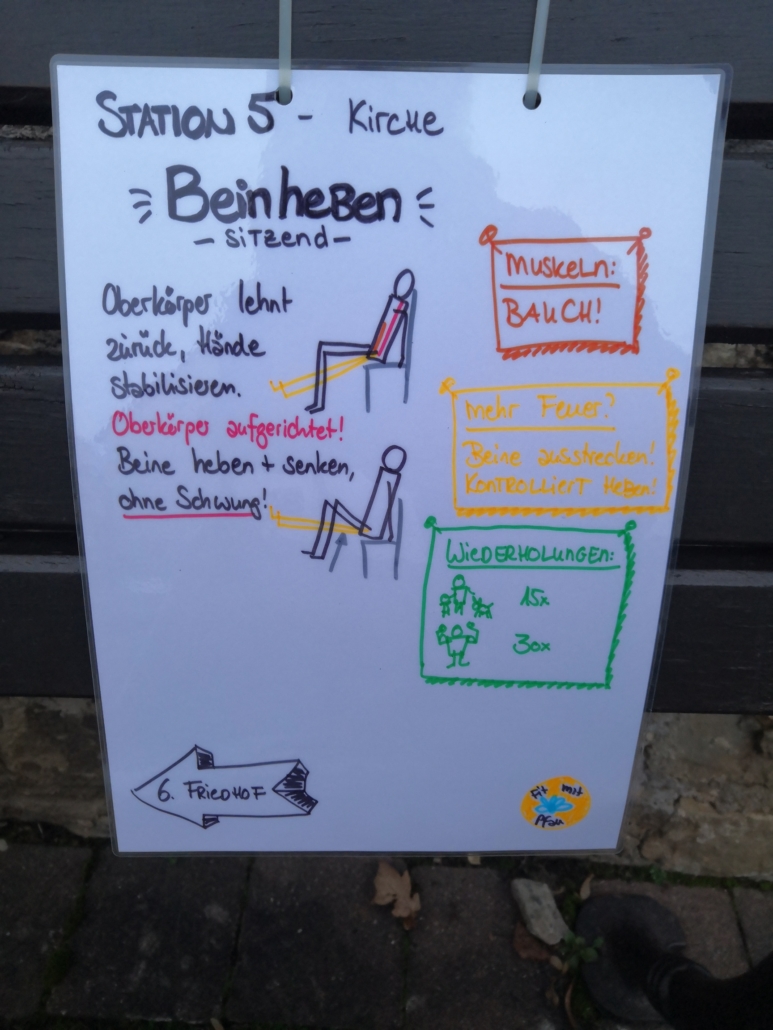 STATION 5 - Kirche
Beinheben
- sitzend -
Oberkörper lehnt
zurück, Hände
stabilisieren.
Oberkörper aufgerichtet!
Beine heben + senken,
ohne Schwung!
Muskeln:
BAUCH!
mehr Feuer?
Beine ausstrecken!
KONTROLLIERT HEBEN!
WIEDERHOLUNGEN:
15x
30x
6. FRIEDHOF
Fit mit
Pfau